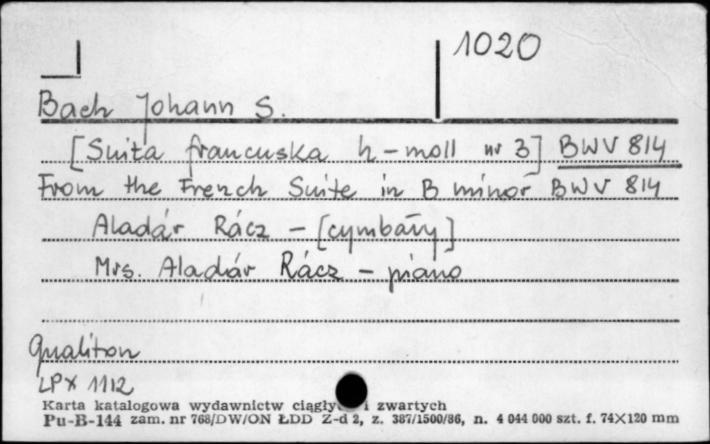 1020
Bach Johann S.
[Suita francuska h-moll nr 3] BWV 814
From the French Suite in B minor BWV 814
Aladár Rácz - [cymbały]
Mrs. Aladár Rácz - piano
Qualiton
LPX 1112
Karta katalogowa wydawnictw ciągły i zwartych
Pu-B-144 zam. nr 768/DW/ON ŁDD Z-d 2, z. 387/1500/86, n. 4 044 000 szt. f. 74X120 mm